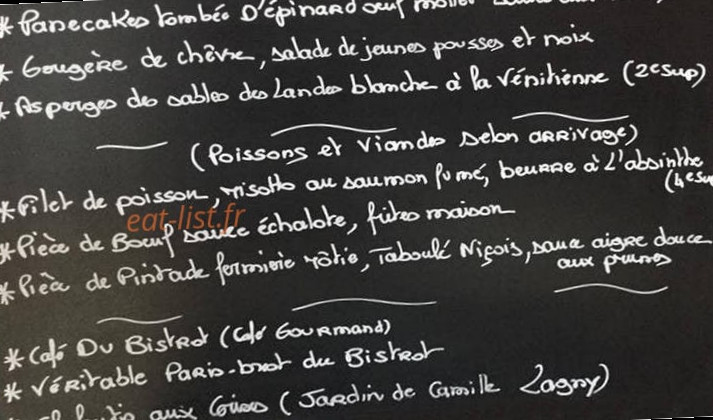 * Panecakes tombée D'épinard oeuf mollet
* Gougère de chèvre, salade de jeunes pousses et noix
* Asperges des sables des Landes blanche à la Vénitienne (2€ sup)
(Poissons et Viandes selon ARRIVAGE)
* Filet de poisson, risotto au saumon fumé, beurre à L'absinthe
(4€ sup
* Pièce de Boeuf sauce échalote, frites maison
eat-list.fr
* Pièce de Pintade fermière rôtie, Taboulé Niçois, sauce aigre douce
aux prunes
* Café Du Bistrot (Café Gourmand)
* Véritable Paris-brest du Bistrot
aux (Jardin de Camille Lagny)